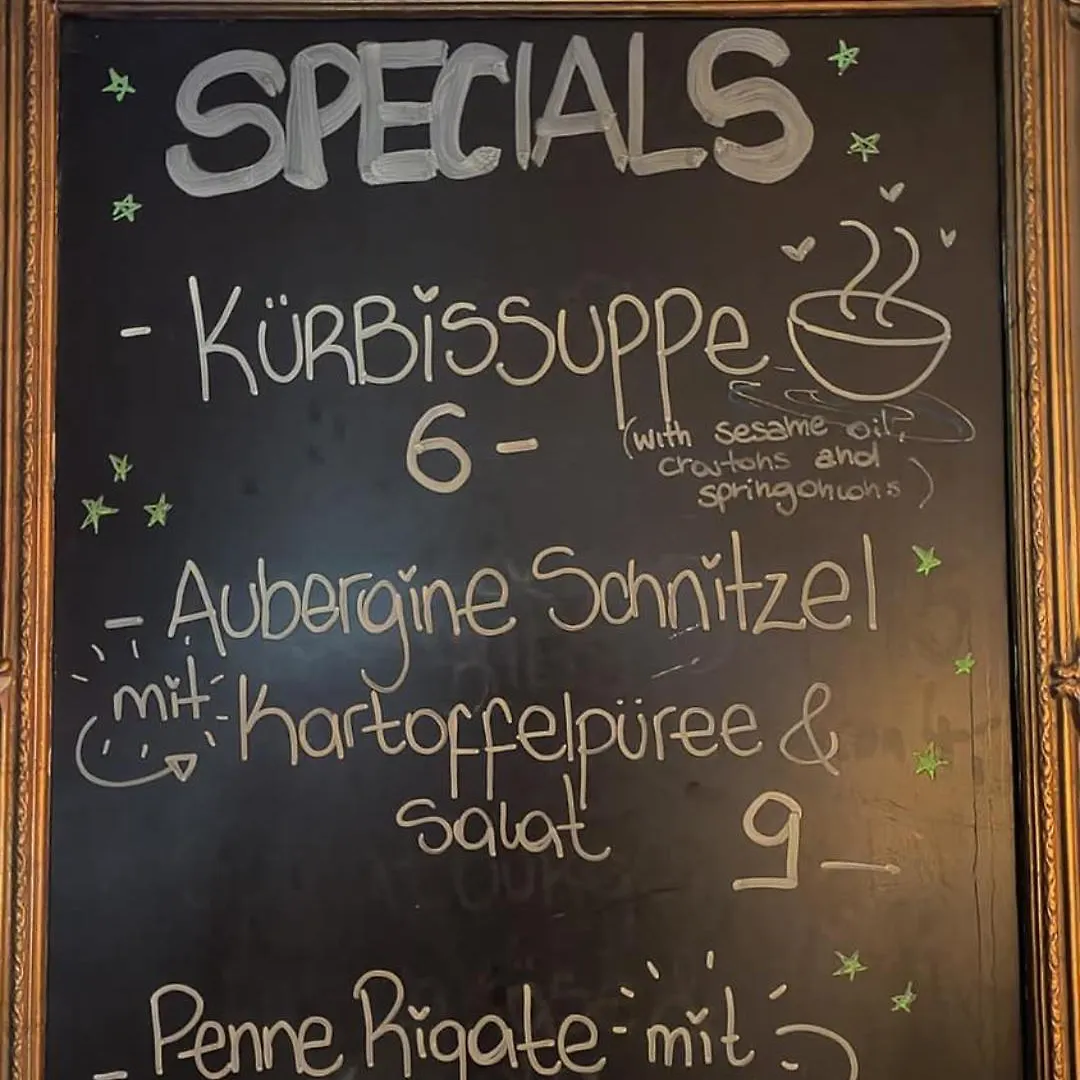 SPECIALS
- KÜRBissuppe
6 -
(with sesame oil,
croutons and
springonions)
- Aubergine Schnitzel
mit Kartoffelpüree &
Salat 9 -
- Penne Rigate mit